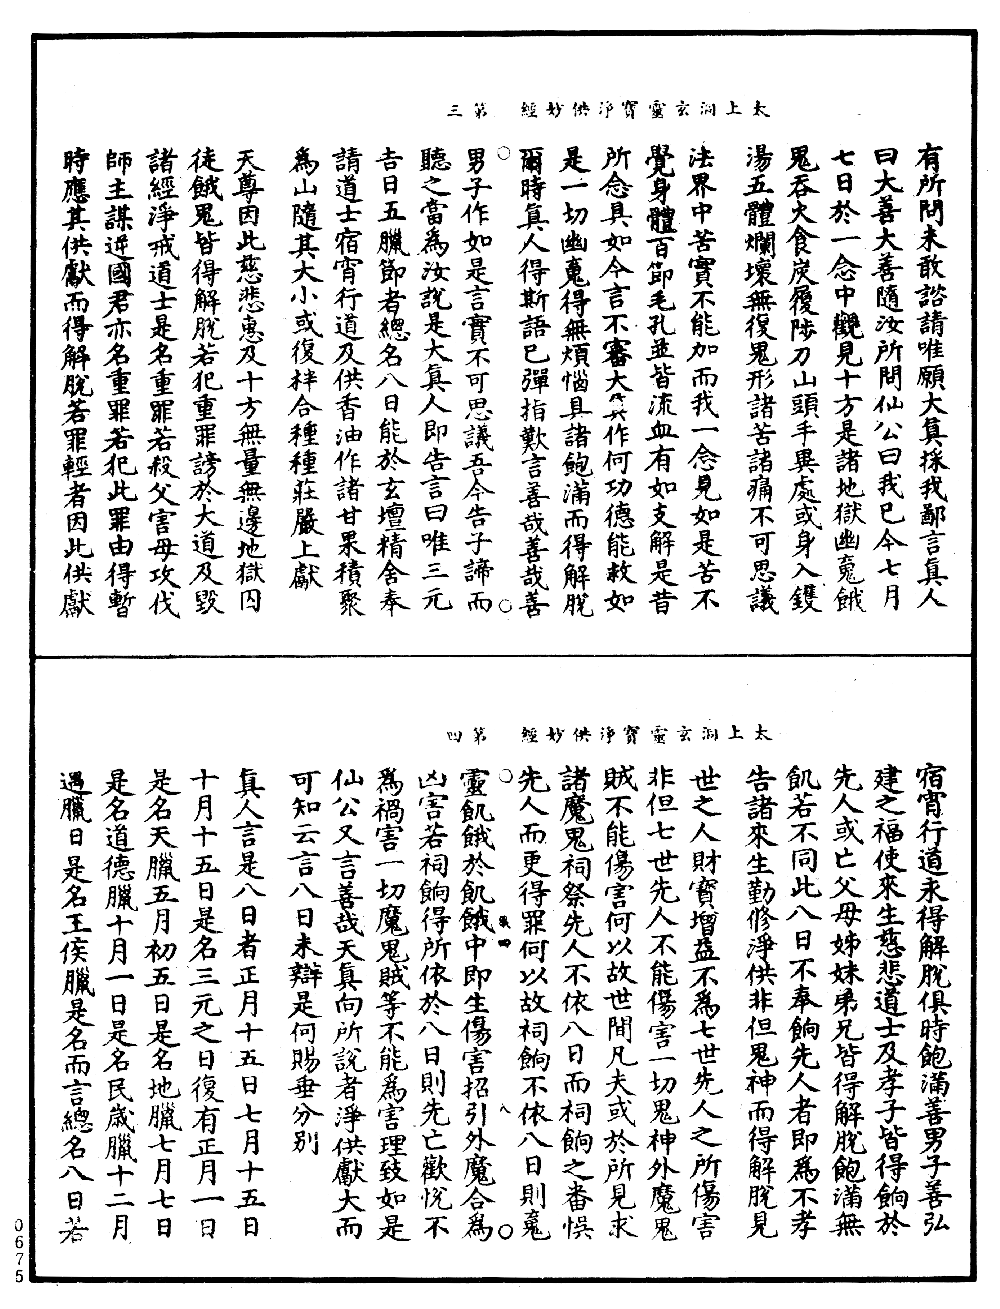 太上洞玄靈寶淨供妙經　第三
有所問未敢諮請唯願大真採我鄙言真人
曰大善大善隨汝所問仙公曰我已今七月
七日於一念中觀見十方是諸地獄幽魂餓
鬼吞火食炭履陟刀山頭手異處或身入鑊
湯五體爛壞無復鬼形諸苦諸痛不可思議
法界中苦實不能加而我一念見如是苦不
覺身體百節毛孔並皆流血有如支解是昔
所念具如今言不審大真作何功德能救如
是一切幽魂得無煩惱具諸飽滿而得解脫
爾時真人得斯語已彈指歎言善哉善哉善
男子作如是言實不可思議吾今告子諦而
聽之當為汝說是大真人即告言曰唯三元
吉日五臘節者總名八日能於玄壇精舍奉
請道士宿宵行道及供香油作諸甘果積聚
為山隨其大小或復柈合種種莊嚴上獻
天尊因此慈悲惠及十方無量無邊地獄囚
徒餓鬼皆得解脫若犯重罪謗於大道及毀
諸經淨戒道士是名重罪若殺父害母攻伐
師主謀逆國君亦名重罪若犯此罪由得暫
時應其供獻而得解脫若罪輕者因此供獻
太上洞玄靈寶淨供妙經　第四
宿宵行道永得解脫俱時飽滿善男子善弘
建之福使來生慈悲道士及孝子皆得餉於
先人或亡父母姊妹弟兄皆得解脫飽滿無
飢若不同此八日不奉餉先人者即為不孝
告諸來生勤修淨供非但鬼神而得解脫見
世之人財寶增益不為七世先人之所傷害
非但七世先人不能傷害一切鬼神外魔鬼
賊不能傷害何以故世間凡夫或於所見求
諸魔鬼祠祭先人不依八日而祠餉之番悞
先人而更得罪何以故祠餉不依八日則魂
靈飢餓於飢餓中即生傷害招引外魔合為
凶害若祠餉得所依於八日則先亡歡悅不
為禍害一切魔鬼賊等不能為害理致如是
仙公又言善哉天真向所說者淨供獻大而
可知云言八日未辯是何賜垂分別
真人言是八日者正月十五日七月十五日
十月十五日是名三元之日復有正月一日
是名天臘五月初五日是名地臘七月七日
是名道德臘十月一日是名民歲臘十二月
遇臘日是名王侯臘是名而言總名八日若
0675